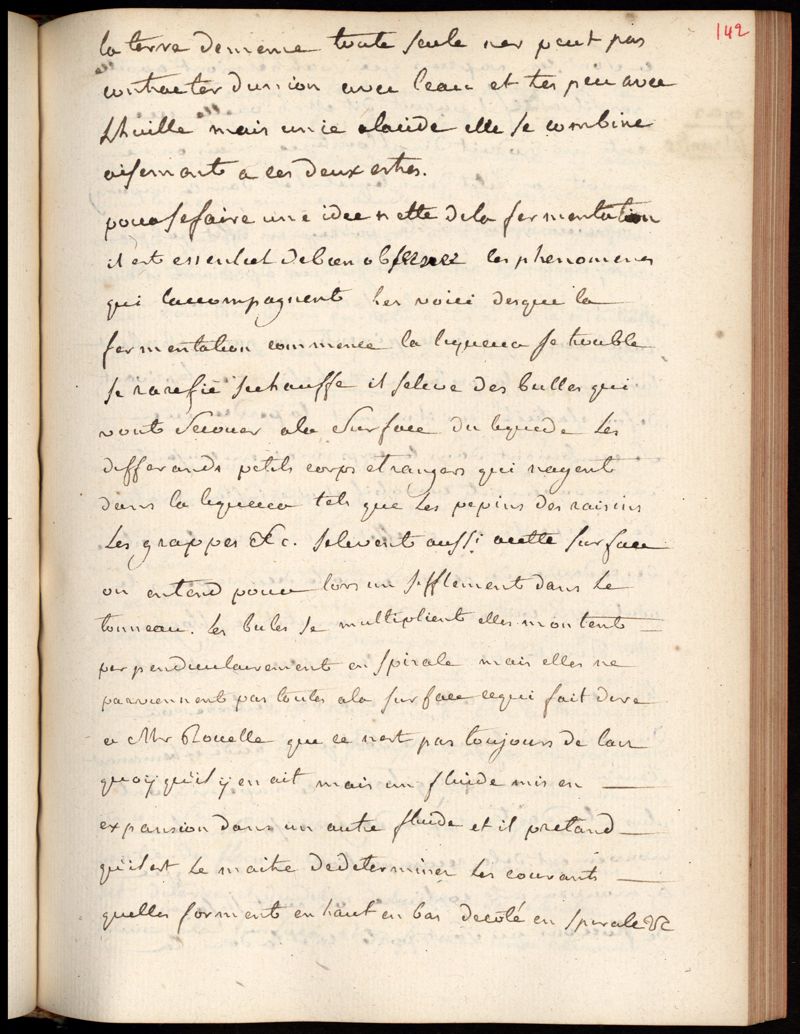 142
la terre de meme toute seule ne peut pas
contracter dunion avec leau et tes peu avec
Lhuille mais unie alacide elle se combine
aisement a ces deux estres.
pour se faire une idee nette dela fermentation
il est essentiel de bien observer les phenomenes
qui laccompagnent les voici desque la
fermentation commence la liqueur se trouble
se rarefie sechauffe il seleve des bulles qui
vont a la Surface du liquide Les
differands petits corps etrangers qui nagent
dans la liqueur tels que Les pepins des raisins
Les grappes &c. selevent aussi acette surface
on entend pour lors un sifflement dans Le
tonneau. Les bules se multiplient elles montent
perpendiculairement en spirale mais elles ne
parviennent pas toutes ala surface cequi fait dire
a Mr Rouelle que ce nest pas toujours de lair
quoy quil y en ait mais un fluide mis en
expansion dans un autre fluide et il pretand
quil est Le maitre dedeterminer Les courants
quelles forment en haut en bas decoté en spirale &c